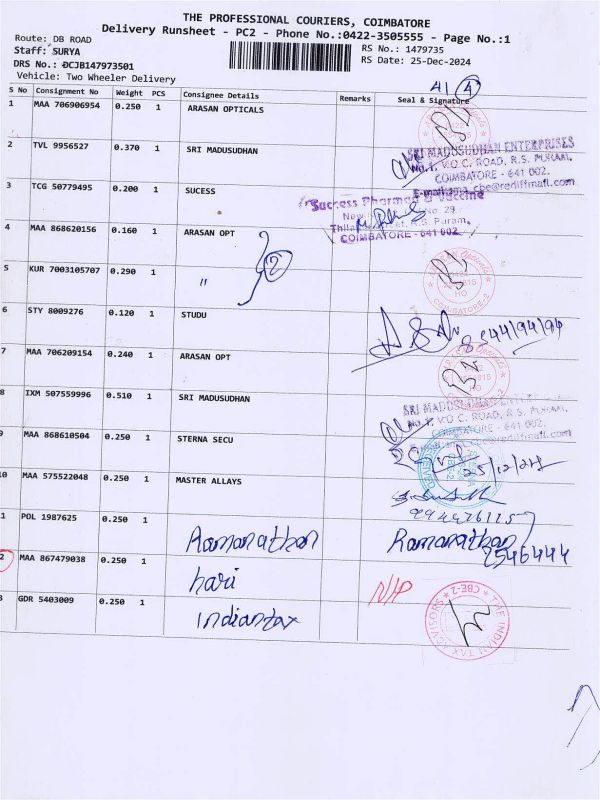 THE PROFESSIONAL COURIERS, COIMBATORE
Delivery Runsheet - PC2 - Phone No.:0422-3505555 - Page No.:1
Route: DB ROAD
RS No.: 1479735
Staff: SURYA
RS Date: 25-Dec-2024
DRS No.: DCJB147973501
Vehicle: Two Wheeler Delivery
41 4
S No Consignment No Weight PCS Consignee Details Remarks Seal & Signature
1 MAA 706906954 0.250 1 ARASAN OPTICALS
2 TVL 9956527 0.370 1 SRI MADUSUDHAN
SRI MADUSUDHAN ENTERPRISES
No.1, V.O.C. ROAD, R.S. PURAM,
COIMBATORE - 641 002.
3 TCG 50779495 0.200 1 SUCESS
Success Pharma & Vaccine
No. 29,
R.S. Puram,
COIMBATORE - 641 002
4 MAA 868620156 0.160 1 ARASAN OPT
2
5 KUR 7003105707 0.290 1 "
COIMBATORE-2
HO
6 STY 8009276 0.120 1 STUDU
8344194194
7 MAA 706209154 0.240 1 ARASAN OPT
8 IXM 507559996 0.510 1 SRI MADUSUDHAN
No.1, V.O.C. ROAD, R.S. PURAM,
COIMBATORE - 641 002.
9 MAA 868610504 0.250 1 STERNA SECU
10 MAA 575522048 0.250 1 MASTER ALLAYS
1 POL 1987625 0.250 1 Ramanathan Ramanathan
2546444
2 MAA 867479038 0.250 1 hari N/P
3 GDR 5403009 0.250 1 Indiantax
THE INDIAN TAX ADVISORS * CBE-2 *